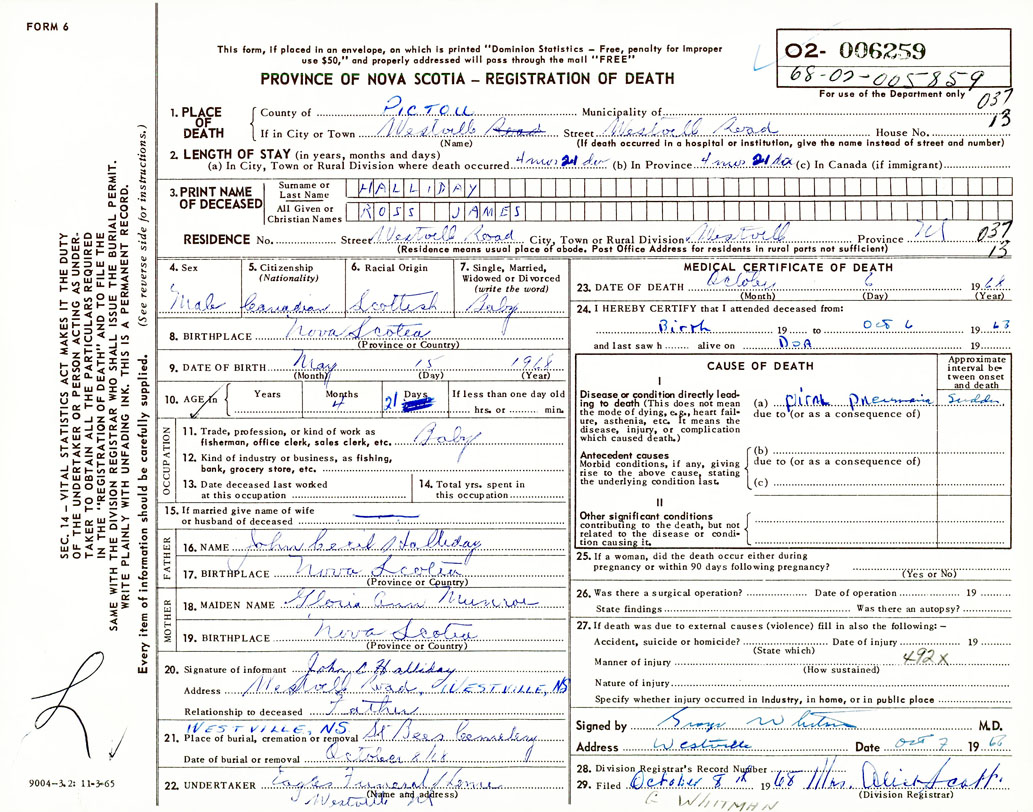 FORM 6
This form, if placed in an envelope, on which is printed "Dominion Statistics – Free, penalty for improper
use $50," and properly addressed will pass through the mail "FREE"
PROVINCE OF NOVA SCOTIA – REGISTRATION OF DEATH
02- 006259
68-02-005859
For use of the Department only
037
13
1. PLACE OF DEATH
County of PICTOU Municipality of
If in City or Town Westvill Road Street Westvill Road House No.
(Name) (If death occurred in a hospital or institution, give the name instead of street and number)
2. LENGTH OF STAY (in years, months and days)
(a) In City, Town or Rural Division where death occurred 4 mos 21 da (b) In Province 4 mos 21 da (c) In Canada (if immigrant)
3. PRINT NAME OF DECEASED
Surname or Last Name HALLIDAY
All Given or Christian Names ROSS JAMES
RESIDENCE No. Street Westvill Road City, Town or Rural Division Westvill Province NS
(Residence means usual place of abode. Post Office Address for residents in rural parts not sufficient)
037
13
4. Sex Male
5. Citizenship (Nationality) Canadian
6. Racial Origin Scottish
7. Single, Married, Widowed or Divorced (write the word) Baby
8. BIRTHPLACE Nova Scotia
(Province or Country)
9. DATE OF BIRTH May 15 1968
(Month) (Day) (Year)
10. AGE in Years Months 4 Days 21 If less than one day old
hrs. or min.
OCCUPATION
11. Trade, profession, or kind of work as
fisherman, office clerk, sales clerk, etc. Baby
12. Kind of industry or business, as fishing,
bank, grocery store, etc.
13. Date deceased last worked
at this occupation
14. Total yrs. spent in
this occupation
15. If married give name of wife
or husband of deceased
FATHER
16. NAME John Cecil Halliday
17. BIRTHPLACE Nova Scotia
(Province or Country)
MOTHER
18. MAIDEN NAME Gloria Ann Munroe
19. BIRTHPLACE Nova Scotia
(Province or Country)
20. Signature of informant John C Halliday
Address Westvill Road, WESTVILLE, NS
Relationship to deceased Father
WESTVILLE, NS.
21. Place of burial, cremation or removal St Bees Cemetery
Date of burial or removal October 8/68
22. UNDERTAKER Eagles Funeral Home
(Name and address)
Westville NS
MEDICAL CERTIFICATE OF DEATH
23. DATE OF DEATH October 6 1968
(Month) (Day) (Year)
24. I HEREBY CERTIFY that I attended deceased from:
Birth 19 to Oct 6 19
and last saw h alive on DOA 19
CAUSE OF DEATH
Approximate interval between onset and death
I
Disease or condition directly leading to death (This does not mean
the mode of dying, e.g., heart failure, asthenia, etc. It means the
disease, injury, or complication
which caused death.)
(a) pneumonia Sudden
due to (or as a consequence of)
Antecedent causes
Morbid conditions, if any, giving
rise to the above cause, stating
the underlying condition last.
(b)
due to (or as a consequence of)
(c)
II
Other significant conditions
contributing to the death, but not
related to the disease or condition causing it.
25. If a woman, did the death occur either during
pregnancy or within 90 days following pregnancy?
(Yes or No)
26. Was there a surgical operation? Date of operation 19
State findings Was there an autopsy?
27. If death was due to external causes (violence) fill in also the following: –
Accident, suicide or homicide? Date of injury 19
(State which)
Manner of injury 492X
(How sustained)
Nature of injury
Specify whether injury occurred in industry, in home, or in public place
Signed by M.D.
Address Westville Date Oct 7 1968
28. Division Registrar's Record Number
29. Filed October 8th 1968 Mrs. Scott
(Division Registrar)
E WHITMAN
SEC. 14 – VITAL STATISTICS ACT MAKES IT THE DUTY
OF THE UNDERTAKER OR PERSON ACTING AS UNDERTAKER TO OBTAIN ALL THE PARTICULARS REQUIRED
IN THE "REGISTRATION OF DEATH" AND TO FILE THE
SAME WITH THE DIVISION REGISTRAR WHO SHALL ISSUE THE BURIAL PERMIT.
WRITE PLAINLY WITH UNFADING INK. THIS IS A PERMANENT RECORD.
Every item of information should be carefully supplied. (See reverse side for instructions.)
9004-3.2: 11-3-65